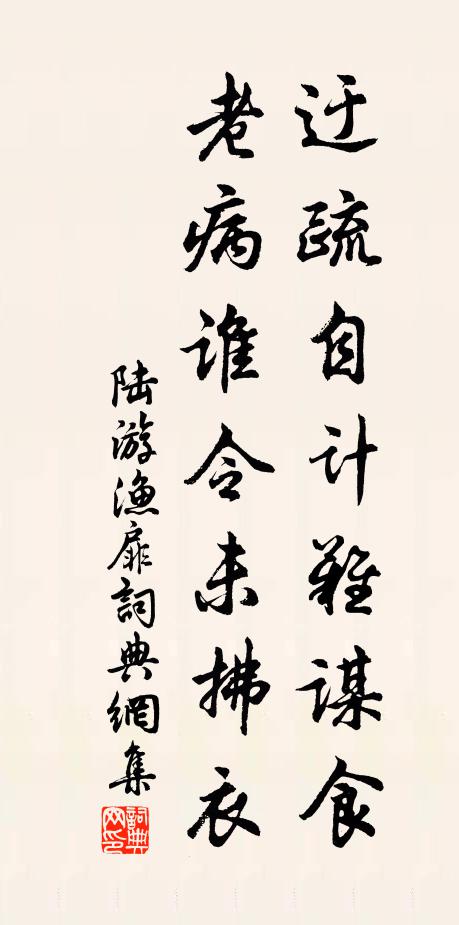 迂疏自计難谋食
老病谁令未拂衣
陆游漁扉詞典網集
詞典网印